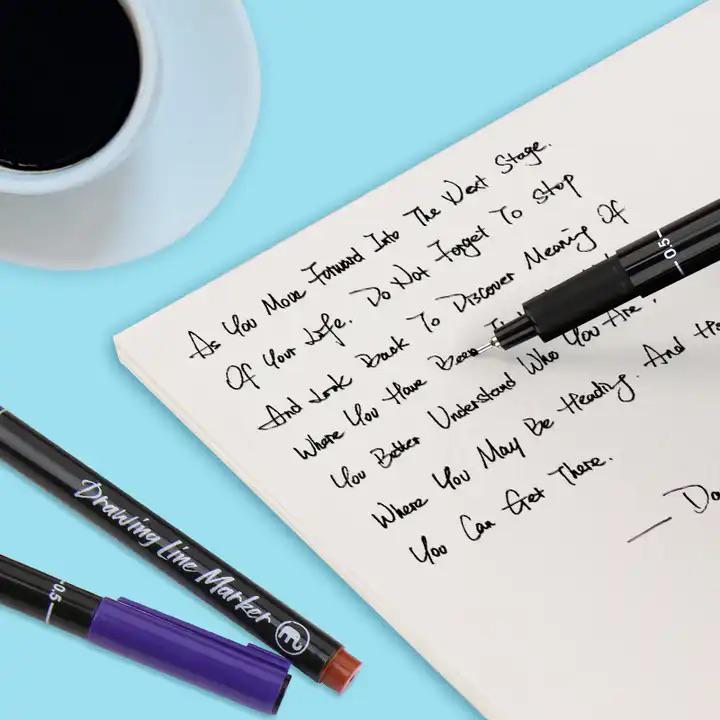 As You Move Forward Into The Next Stage.
Of Your Life. Do Not Forget To Stop
And Look Back To Discover Meaning Of
Where You Have Been
You Better Understand Who You Are.
Where You May Be Heading. And
You Can Get There.
0.5
Drawing Line Marker
0.5